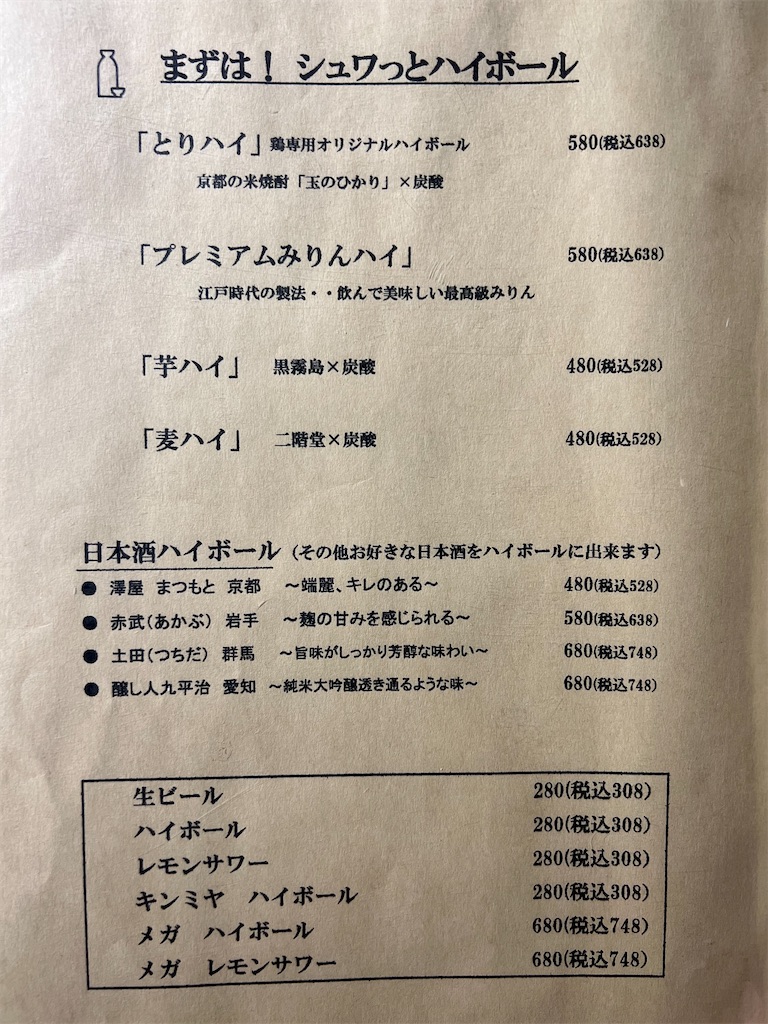 まずは！ シュワっとハイボール
「とりハイ」鶏専用オリジナルハイボール 580(税込638)
京都の米焼酎「玉のひかり」×炭酸
「プレミアムみりんハイ」 580(税込638)
江戸時代の製法・・飲んで美味しい最高級みりん
「芋ハイ」 黒霧島×炭酸 480(税込528)
「麦ハイ」 二階堂×炭酸 480(税込528)
日本酒ハイボール（その他お好きな日本酒をハイボールに出来ます）
● 澤屋 まつもと 京都 ～端麗、キレのある～ 480(税込528)
● 赤武（あかぶ） 岩手 ～麹の甘みを感じられる～ 580(税込638)
● 土田（つちだ） 群馬 ～旨味がしっかり芳醇な味わい～ 680(税込748)
● 醸し人九平治 愛知 ～純米大吟醸透き通るような味～ 680(税込748)
生ビール 280(税込308)
ハイボール 280(税込308)
レモンサワー 280(税込308)
キンミヤ ハイボール 280(税込308)
メガ ハイボール 680(税込748)
メガ レモンサワー 680(税込748)